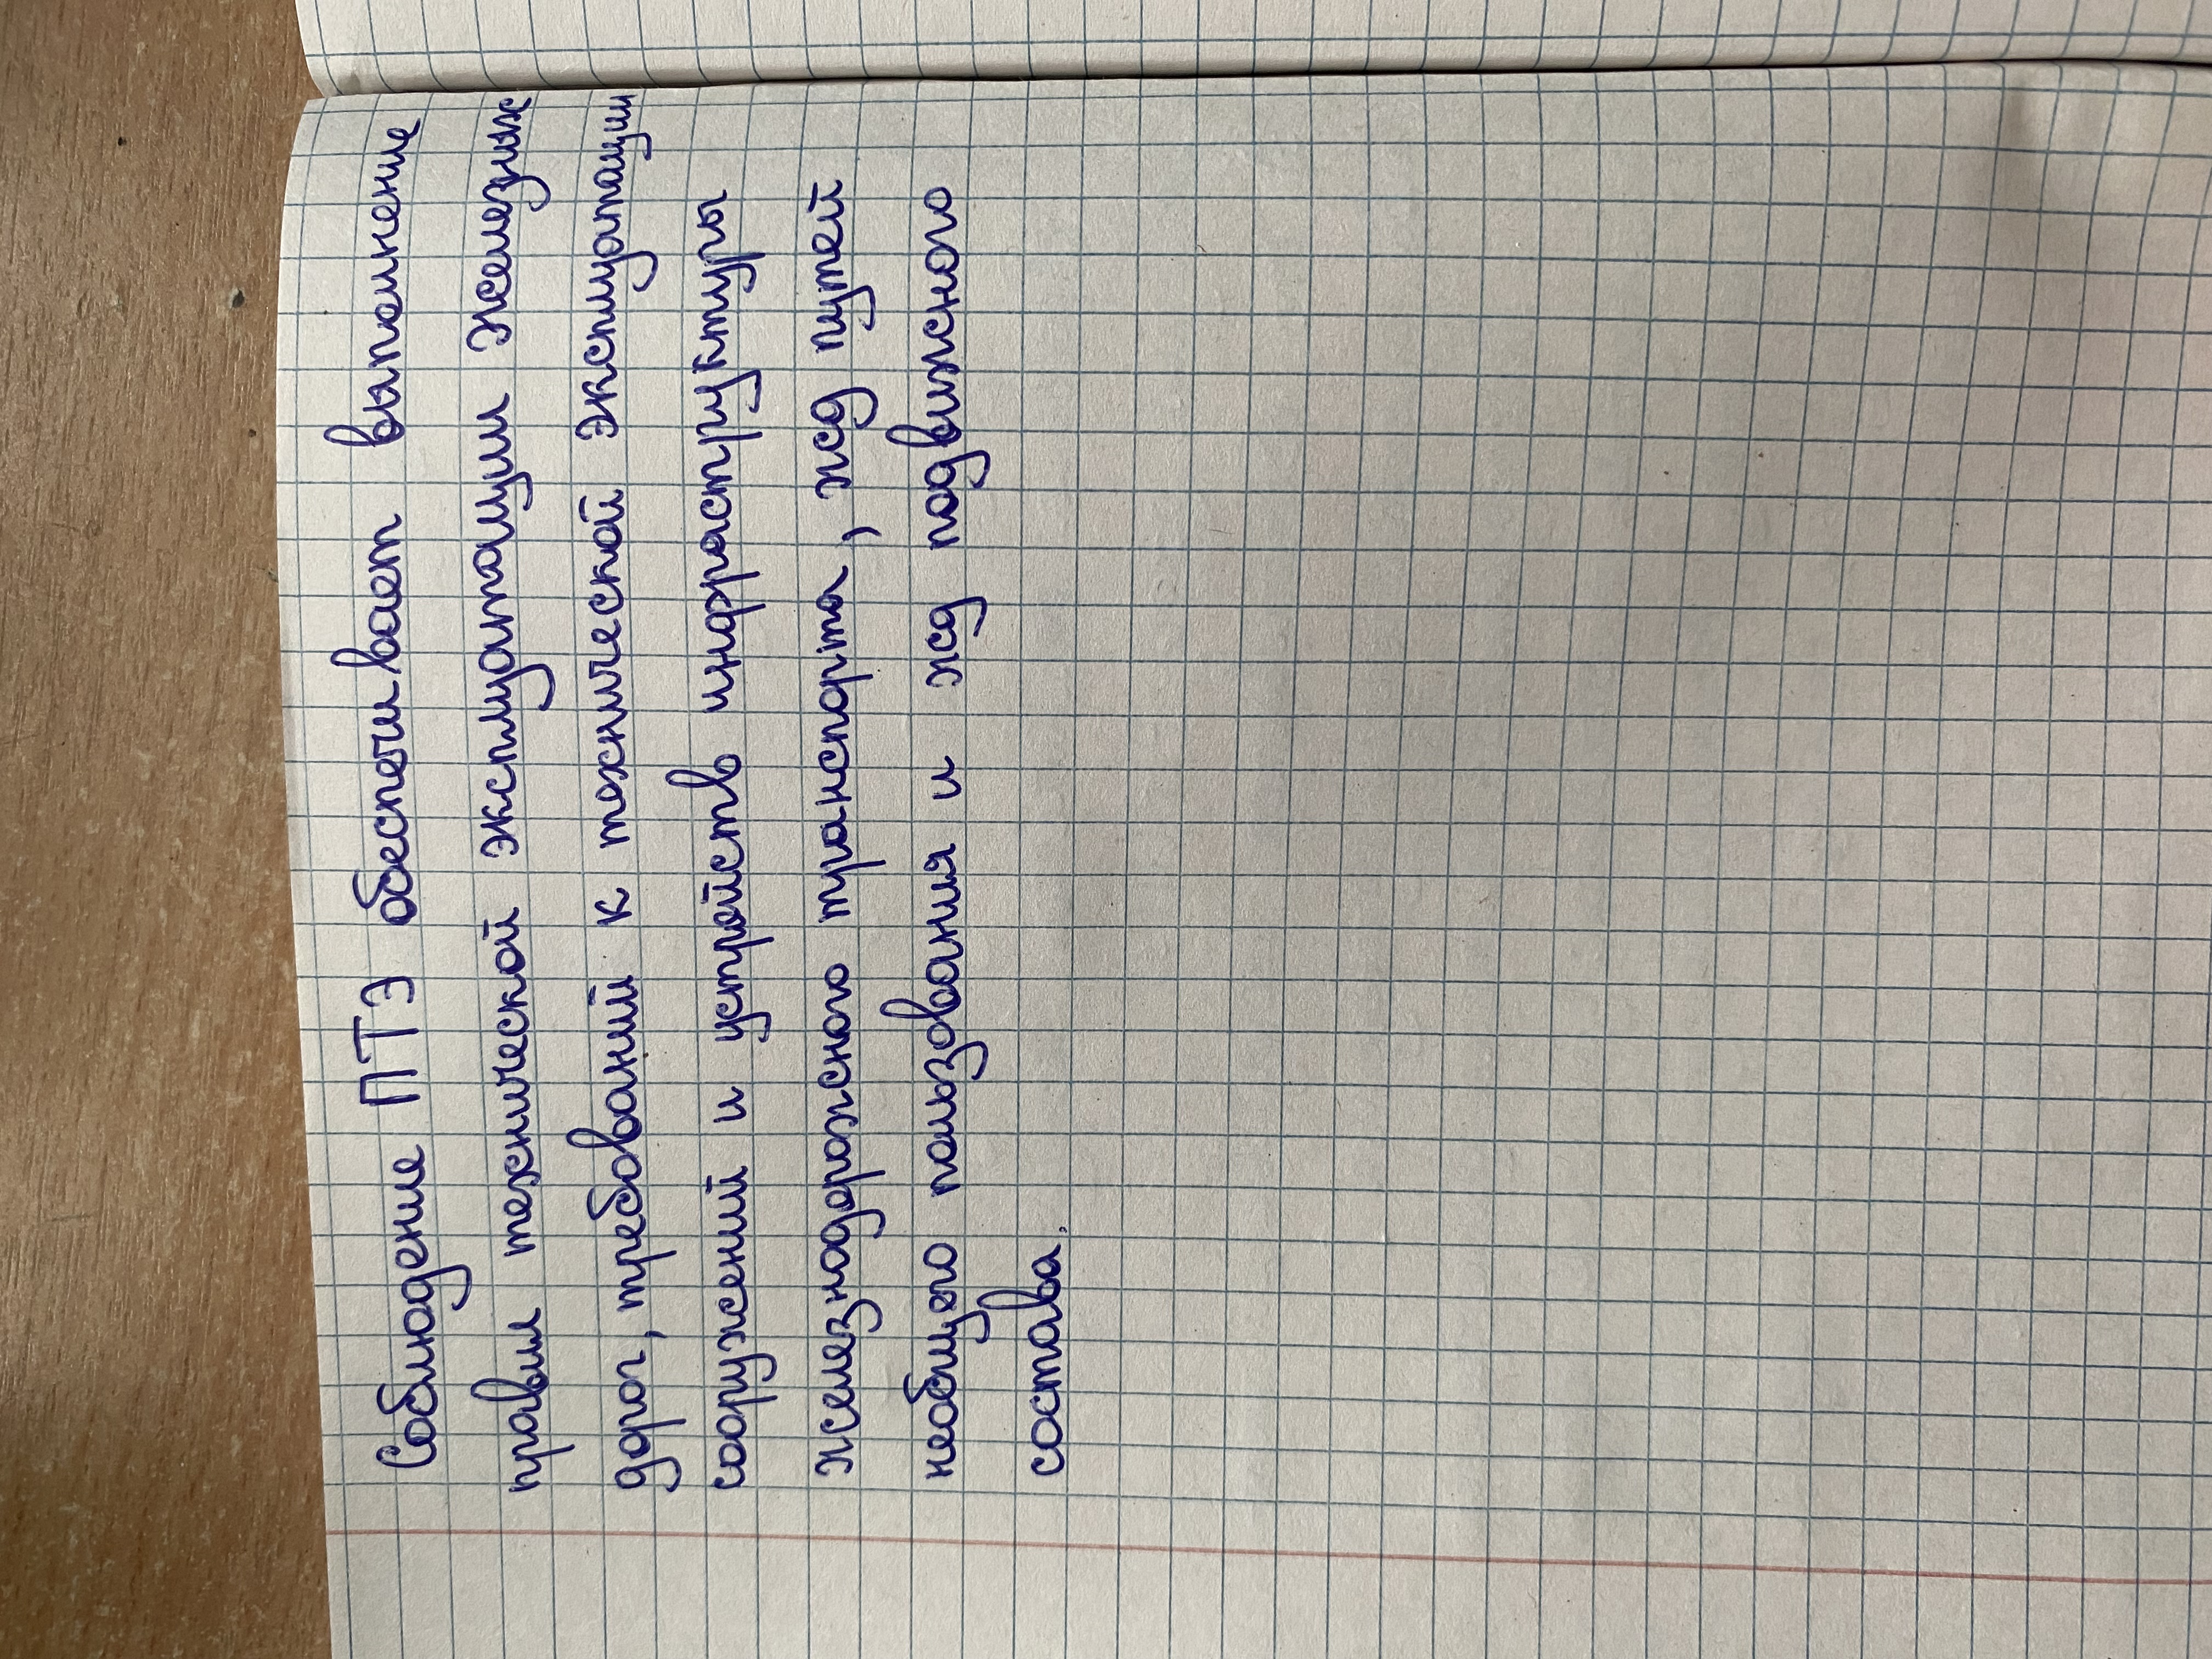 Соблюдение ПТЭ обеспечивает выполнение
правил технической эксплуатации Железных
дорог, требований к технической эксплуатации
сооружений и устройств инфраструктуры
железнодорожного транспорта, жд путей
необщего пользования и жд подвижного
состава.